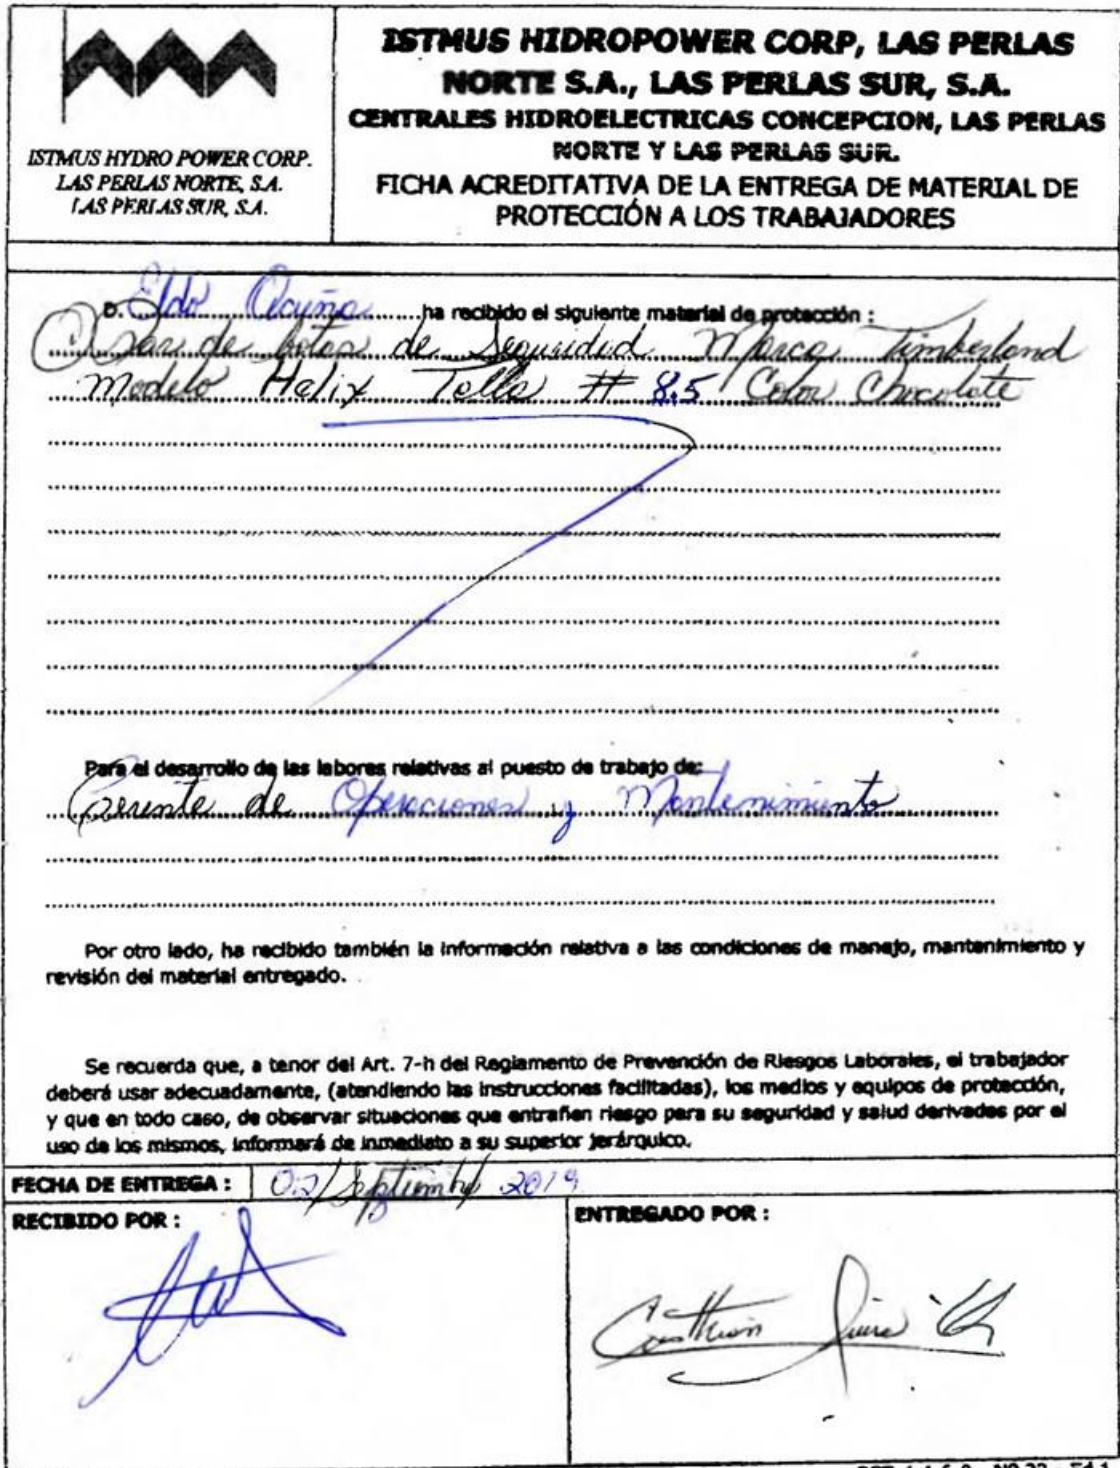 ISTMUS HYDRO POWER CORP.
LAS PERLAS NORTE, S.A.
LAS PERLAS SUR, S.A.
ISTMUS HIDROPOWER CORP, LAS PERLAS
NORTE S.A., LAS PERLAS SUR, S.A.
CENTRALES HIDROELECTRICAS CONCEPCION, LAS PERLAS
NORTE Y LAS PERLAS SUR.
FICHA ACREDITATIVA DE LA ENTREGA DE MATERIAL DE
PROTECCIÓN A LOS TRABAJADORES
D. Eldo Acuña ha recibido el siguiente material de protección :
Par de botas de Seguridad Marca Timberland
Modelo Helix Talla # 8.5 Color Chocolate
Para el desarrollo de las labores relativas al puesto de trabajo de:
Gerente de Operaciones y Mantenimiento
Por otro lado, ha recibido también la información relativa a las condiciones de manejo, mantenimiento y
revisión del material entregado.
Se recuerda que, a tenor del Art. 7-h del Reglamento de Prevención de Riesgos Laborales, el trabajador
deberá usar adecuadamente, (atendiendo las instrucciones facilitadas), los medios y equipos de protección,
y que en todo caso, de observar situaciones que entrañen riesgo para su seguridad y salud derivados por el
uso de los mismos, informará de inmediato a su superior jerárquico.
FECHA DE ENTREGA : 02/Septiembre 2019
RECIBIDO POR :
ENTREGADO POR :